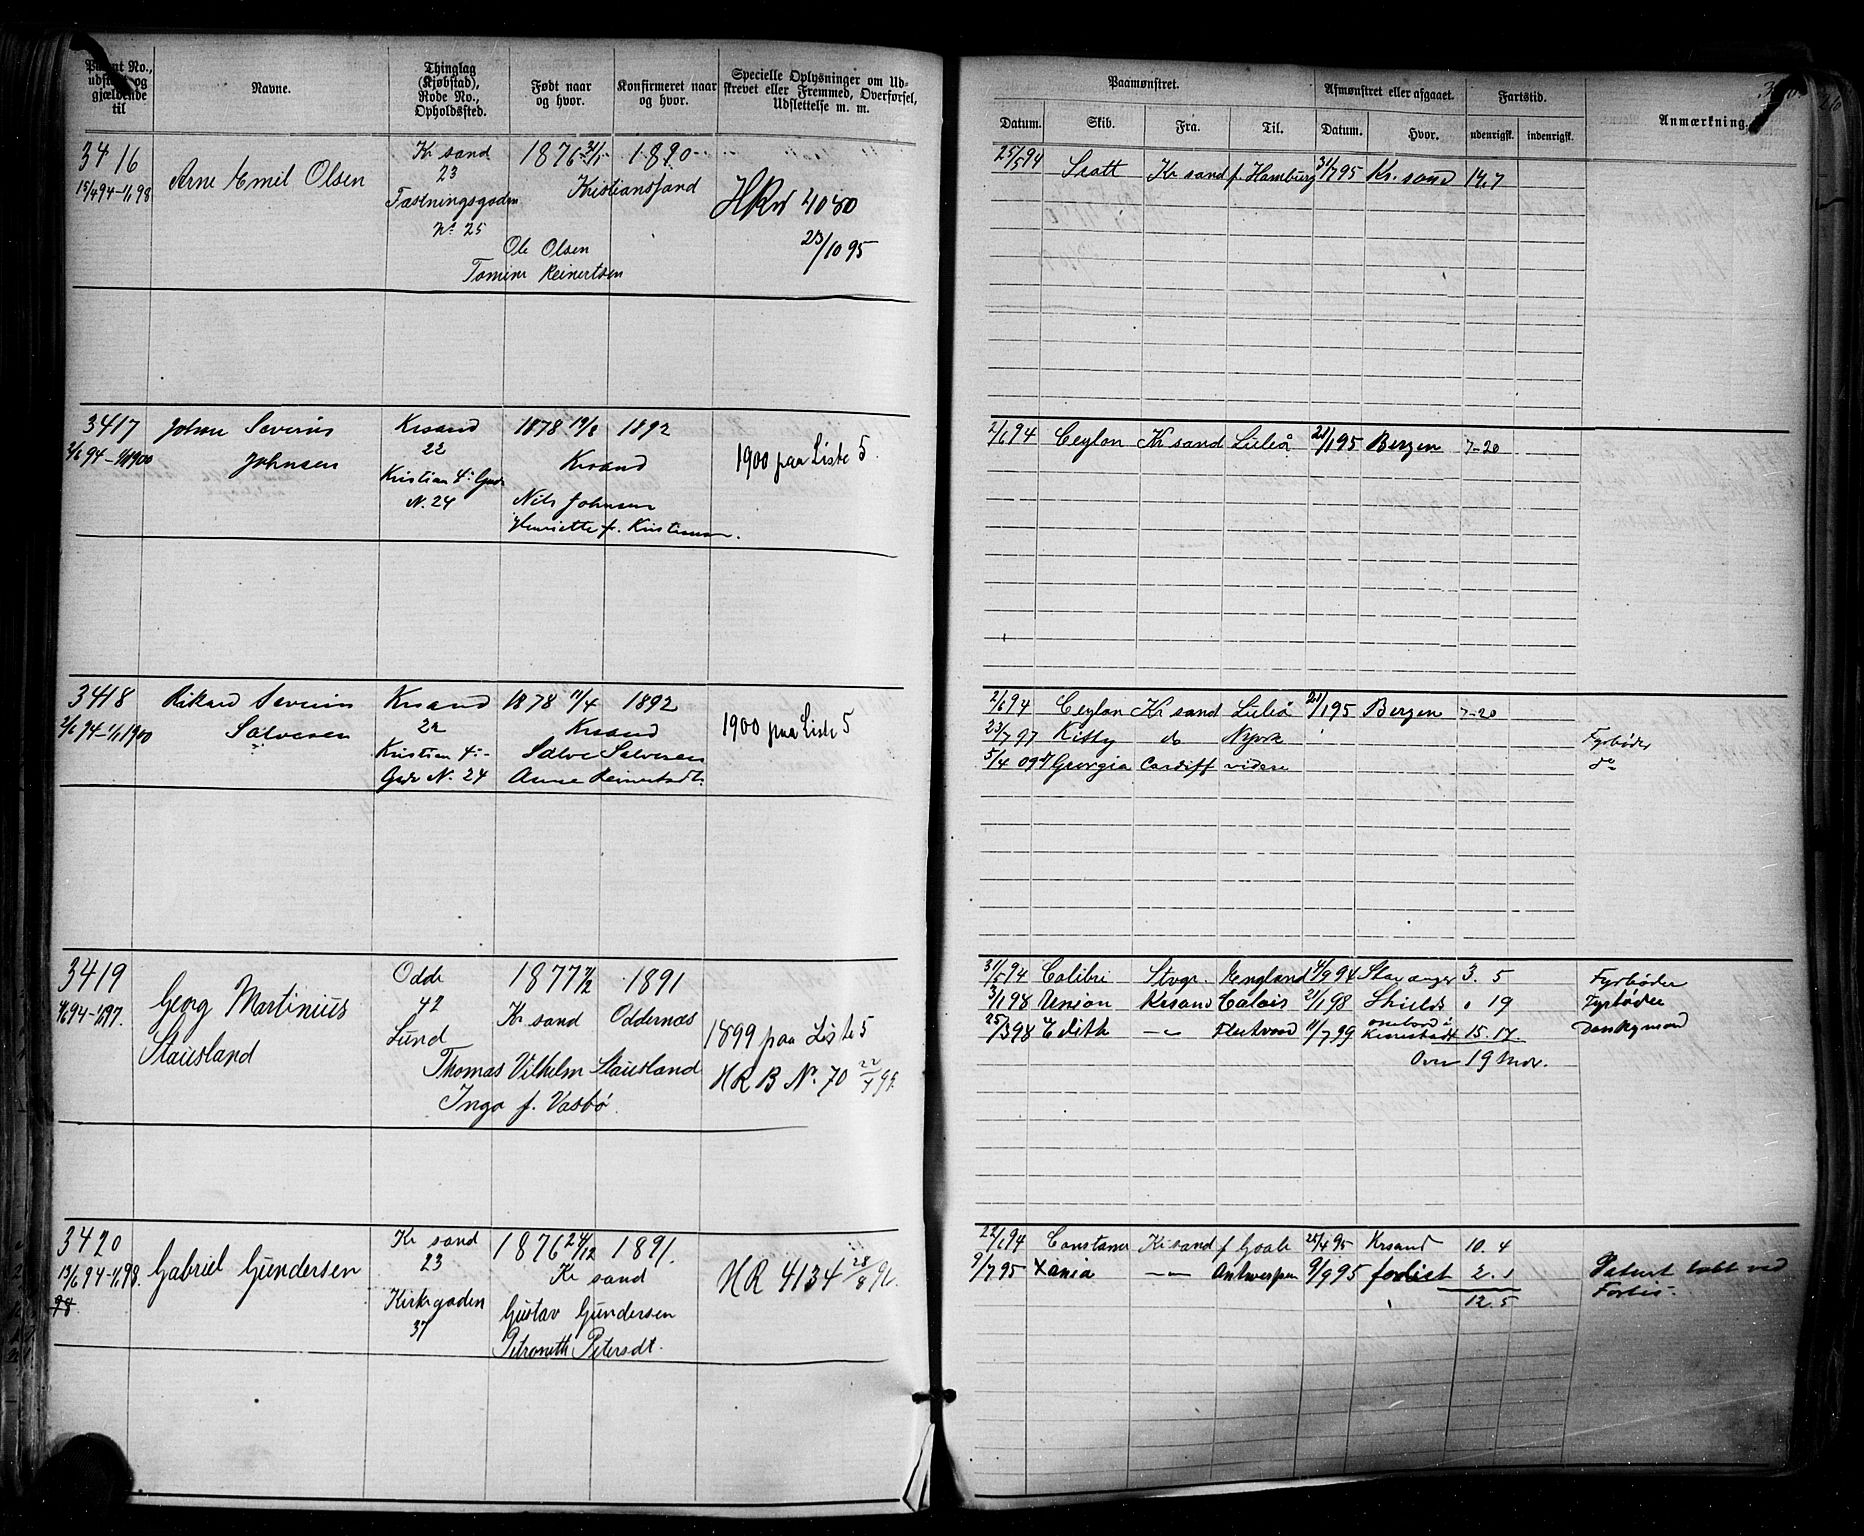 Patent No., udstedt og gjældende til
Navne.
Thinglag (Kjøbstad), Rode No., Opholdssted.
Født naar og hvor.
Konfirmeret naar og hvor.
Specielle Oplysninger om Udskrevet eller Fremmed, Overførsel, Udslettelse m. m.
Paamønstret.
Datum.
Skib.
Fra.
Til.
Afmønstret eller afgaaet.
Datum.
Hvor.
Fartstid.
udenrigsk.
indenrigsk.
Anmærkning.
3416
15/4 94-1/1 98
Arne Emil Olsen
Kr sand
23
Fæstningsgaden
No 25
1876 31/5 1890
Kristianssand
Ole Olsen
Tomine Reinertsen
HRN 4080
23/10 95
25/5 94 Scott Kr sand f. Hamburg 31/7 95 Kr. sand 14,7
3417
2/6 94-1/1 1900
Johan Severin
Johnsen
Krsand
22
Kristian 4: Gade
N. 24
1878 19/8 1892
Krsand
Nils Johnsen
Henriette f. Kristensen.
1900 paa Liste 5.
2/6 94 Ceylon Kr sand Luleå 21/1 95 Bergen 7-20
3418
2/6 94-1/1 1900
Rikard Severin
Salvesen
Krsand
22
Kristian 4:-
Gade N. 24
1878 11/4 1892
Krsand
Salve Salvesen
Anne Reinertsdt.
1900 paa Liste 5
2/6 94 Ceylon Kr sand Luleå 21/1 95 Bergen 7-20
23/7 97 Kitty do Nyork Fyrbøder
5/4 09 Georgia Cardiff videre do
3419
94-1/1 97.
Georg Martinius
Stausland
Odde
42
Lund
1877 7/12 1891
Kr sand Oddernæs
Thomas Vilhelm Stausland
Inga f. Vasbø.
1899 paa Liste 5
HR B No. 70 22/7 9
31/5 94 Colibri Stvgr. England 4/9 94 Stavanger 3. 5 Fyrbøder
3/1 98 Union Krsand Calais 21/1 98 Shields 19 Fyrbøder
25/3 98 Edith -"- Fleetwood 11/7 99 15. 17. Donkeymand
Over 19 mdr.
3420
13/6 94-1/1 98.
98.
Gabriel Gundersen
Kr sand
23
Kirkegaden
37
1876 24/12 1891.
Kr sand
Gustav Gundersen
Petronelle Petersdt.
HR 4134 28/8 96.
22/6 94 Constance Kr sand f Goole 25/4 95 Krsand 10. 4
9/7 95 Xania -"- Antwerpen 9/9 95 forlist 2. 1 Patent tabt ved
12. 5 Forlis.